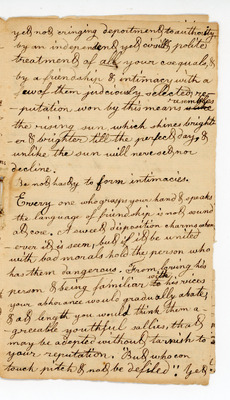 yet not cringing deportment to authority
by an independent, yet civil & polite
treatment of all your coequals, &
by a friendship & intimacy with a
few of them judiciously selected, re-
putation won by this means resembles
the rising sun, which shines bright-
er & brighter till the perfect day, &
unlike the sun will never set, nor
decline.
Be not hasty to form intimacies.
Every one who grasps your hand & speaks
the language of friendship is not sound
at core. A sweet disposition charms when-
ever it is seen, but if it be united
with bad morals hold the person who
has them dangerous. From loving his
person & being familiar with his vices
your abhorance would gradually abate,
& at length you would think them a-
greeable youthful sallies, that
may be accepted without tarnish to
your reputation. But who can
touch pitch & not be defiled? Yet